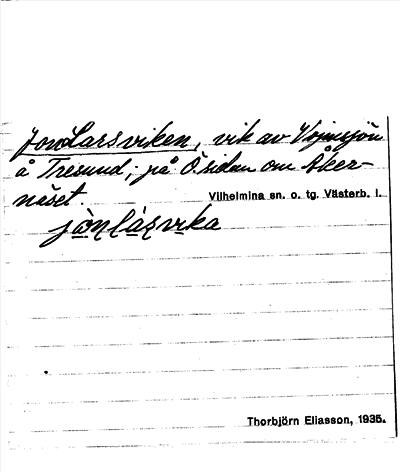 JonLarsviken, vik av Vojmsjön
å Tresund; på Ö. sidan om Åker-
näset.
Vilhelmina sn. o. tg. Västerb. l.
jònlásvika
Thorbjörn Eliasson, 1935.